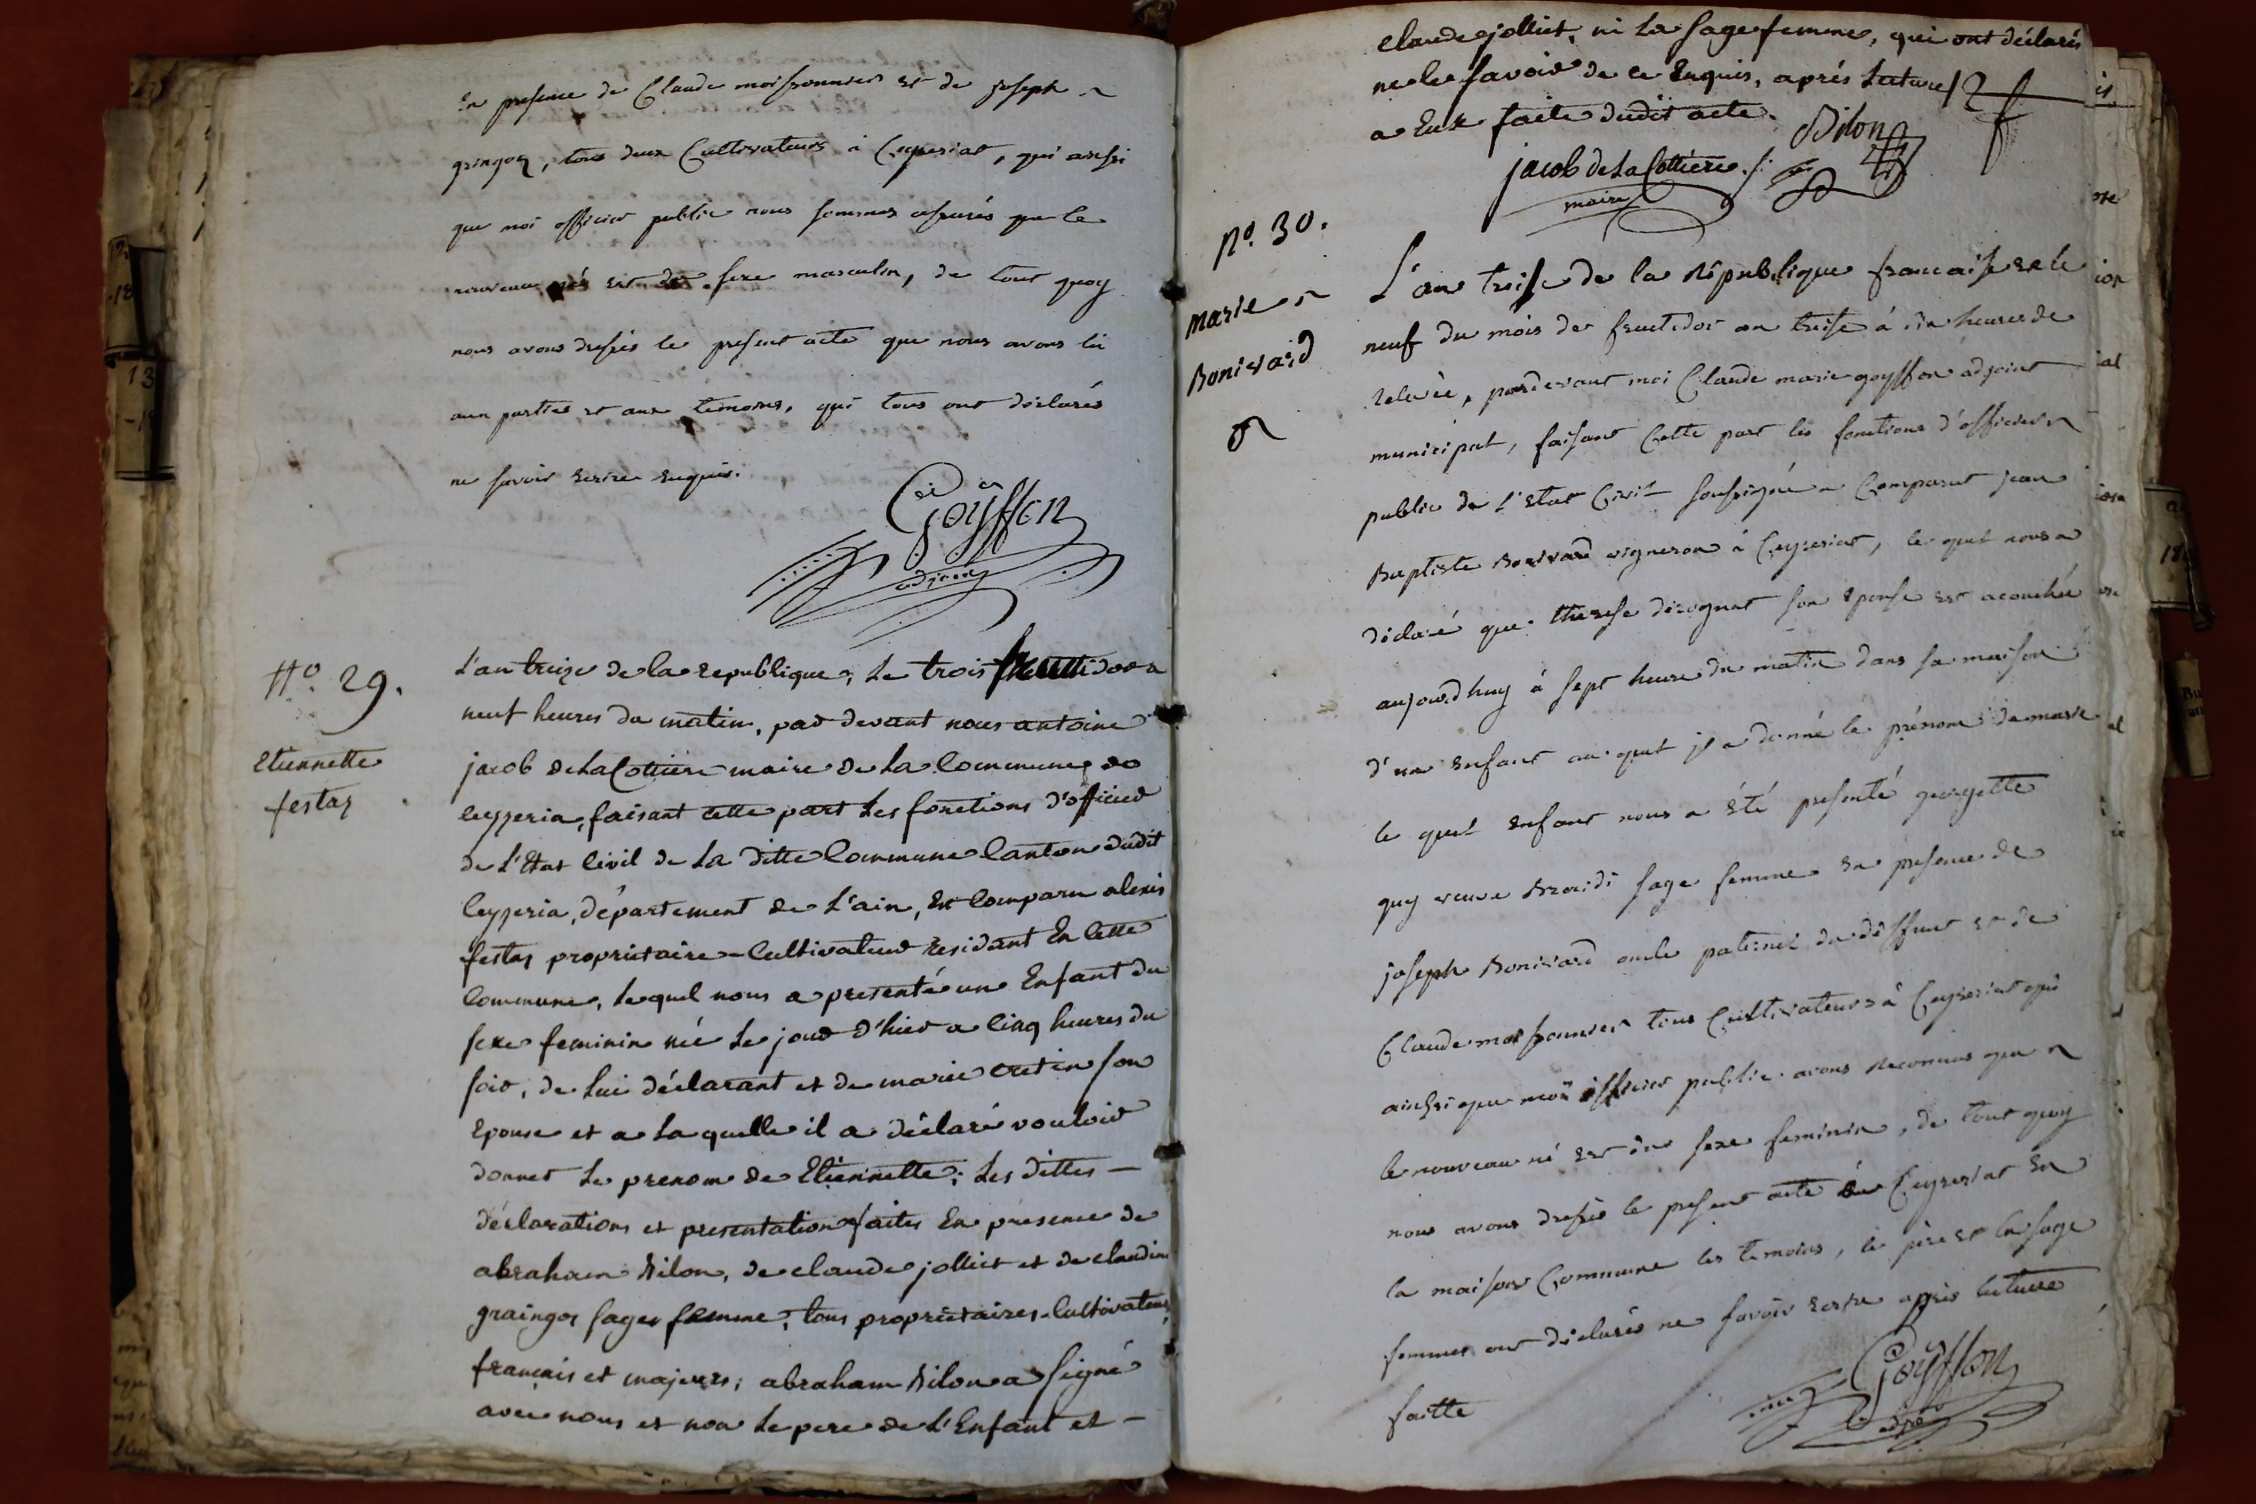 En presence de Claude moissonnier et de joseph
gringoz, tous deux Cultivateurs à Ceyzeriat, qui aussi
que moi officier public nous sommes assurés que le
nouveau né est du sexe masculin, de tout quoy
nous avons dressés le present acte que nous avons lü
aux parties et aux temoins, qui tous ont déclarés
ne savoir ecrire enquis.
Goÿffon
adjoint
N.º 29.
Etiennette
festaz
L'an treize de la republique, le trois fructidor a
neuf heures du matin, par devant nous antoine
jacob de La Cottiere maire de la Commune de
Ceyzeria, faisant cette part les fonctions d'officier
de L'Etat Civil de La ditte Commune Canton dudit
Ceyzeria, département de L'ain, Est Comparu alexis
festaz propriétaire-Cultivateur residant En Cette
Commune, Lequel nous a presenté un Enfant du
sexe feminin né Le jour d'hier a Cinq heures du
soir, de Lui déclarant et de marie cretin son
Epouse et a Laquelle il a déclaré vouloir
donner Le prenom de Etiennette; Les dittes -
déclarations et presentation faites En présence de
abraham Bilon, de claude jolliet et de claudine
graingoz sage femme, tous propriétaires-Cultivateurs,
français et majeurs; abraham Bilon a signé
avec nous et non Le pere de L'Enfant et -
Claude jolliet, ni La sage femme, qui ont déclarés
ne Le savoir de ce Enquis, après Lecture
a Eux faite dudit acte.
Bilon
jacob de La Cottiere
maire
N.º 30.
Marie
Bonivard
L'an treise de la République francaise et le
neuf du mois de fructidor an treise à six heures de
relevée, pardevant moi Claude marie goyffon adjoint
municipal, faisant Cette part les fonctions d'officier
public de L'etat Civil soussigné a Comparut jean
Baptiste Bonivard vigneron à Ceyzeriat, le quel nous a
déclaré que therese dirognat son epouse est acouchée
aujourd'huy à sept heure du matin dans sa maison
d'un enfant au quel il a donné le prénom de marie
le quel enfant nous a été presenté georgette
guy veuve Brevidi sage femme en presence de
joseph Bonivard oncle paternel du deffunt et de
Claude moissonnier tous Cultivateurs à Ceyzeriat qui
ainssi que moï officier public avons reconnus que
le nouveau né est du sexe feminin, de tout quoy
nous avons dressés le present acte à Ceyzeriat En
la maison Commune les temoins, le père et la sage
femmes ont déclarés ne savoir ecrire après lecture
faitte
Goÿffon